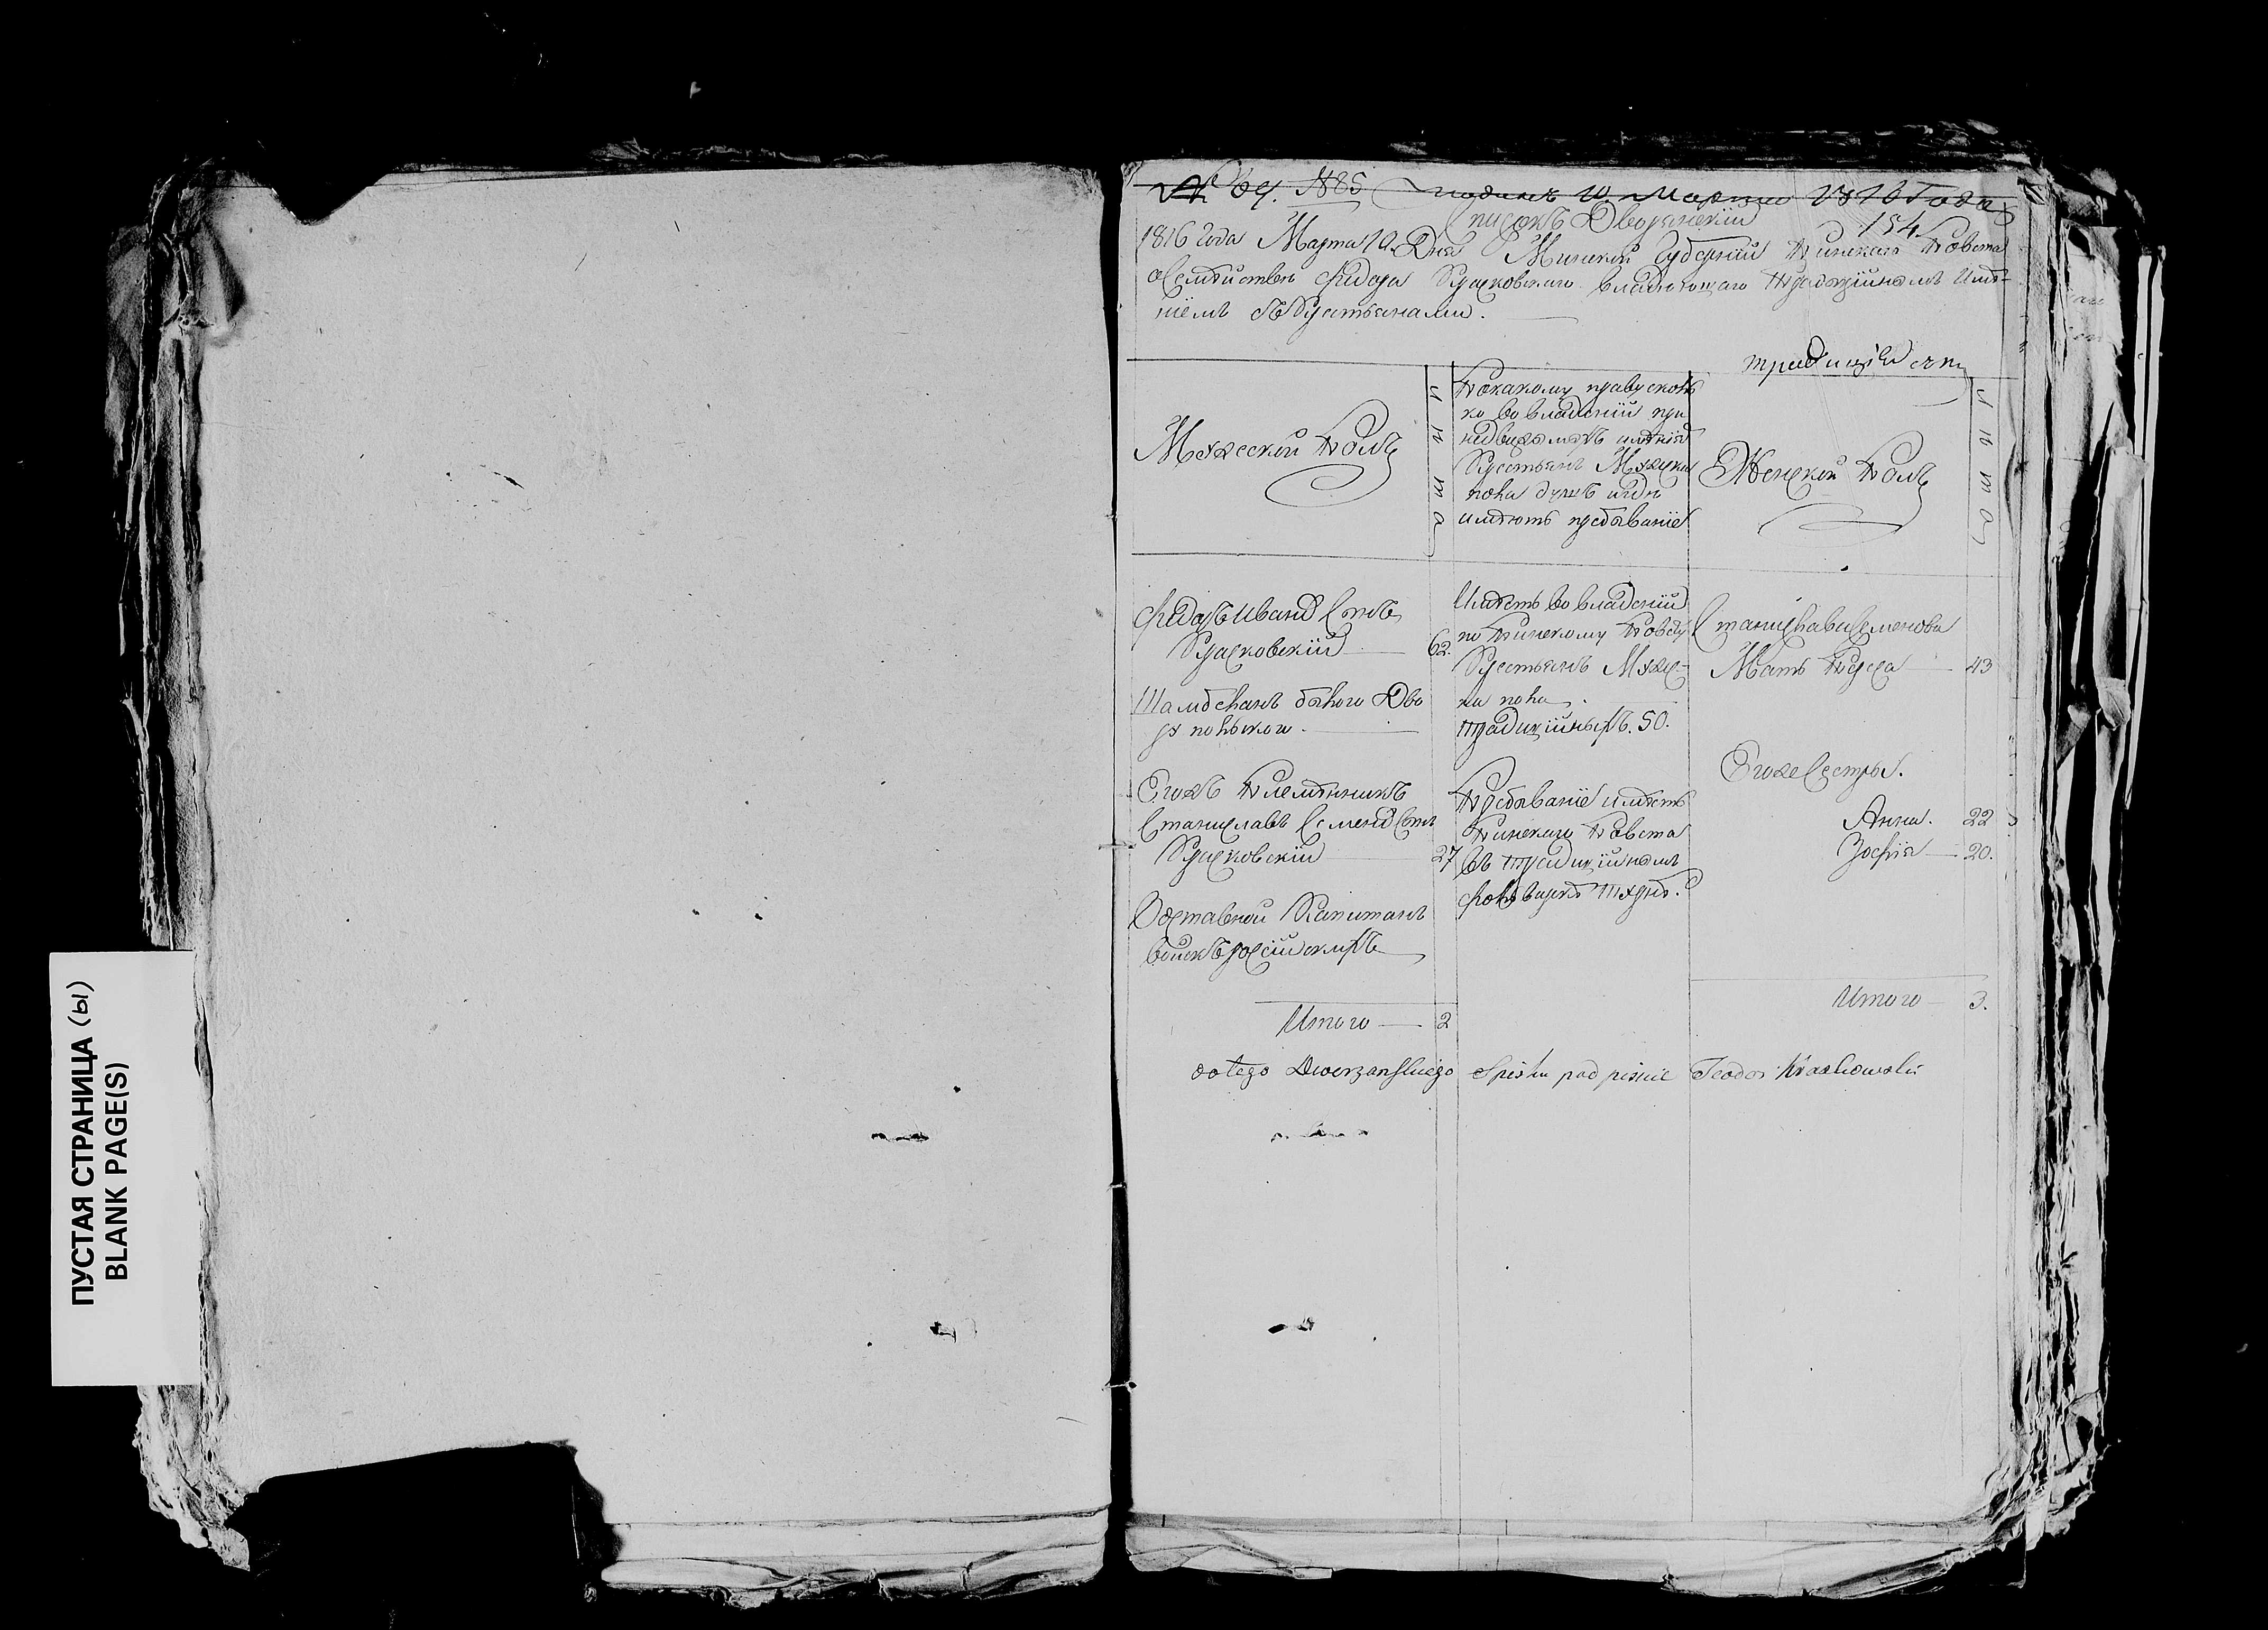 ПУСТАЯ СТРАНИЦА (ы)
BLANK PAGE(S)
№ 64. №85 подан 10. Марта 1816 Года
Списокъ Дворянскій
154
1816 Года Марта 10. Дня Минской Губерніи Пинскаго Повета
о Семействе Фидора Красковскаго владеющаго Традыційнымъ Име-
ніемъ съ Крестьянами.
традиційст
Мужеской Полъ
Лита
По какому праву сколь
ко во владеніи при
недвижомомъ именіи
Крестьянъ Мужеска
пола душъ и где
имеютъ пребываніе
Женской Полъ
Лита
Фидоръ Иванов Сынъ
Красковскій 62.
Шамбеланъ былого Дво
ра польского.
Имеетъ во владеніи
по Пинскому Повету
Крестьянъ Мужес-
ка пола
традиційныхъ. 50.
Станислава Семенова
Мать Тереса 43
Егожъ Племянникъ
Станиславъ Семенов Сынъ
Красковскій 27
Отставной Капитанъ
войскъ россійскихъ
Пребываніе имеетъ
Пинского Повета
въ традиційномъ
фольварке
Егоже Сестры.
Анна. 22
Зофія 20.
Итого 2
Итого 3.
do tego Dworzanskiego Spisku pod pisuie Teodor Kraskowski